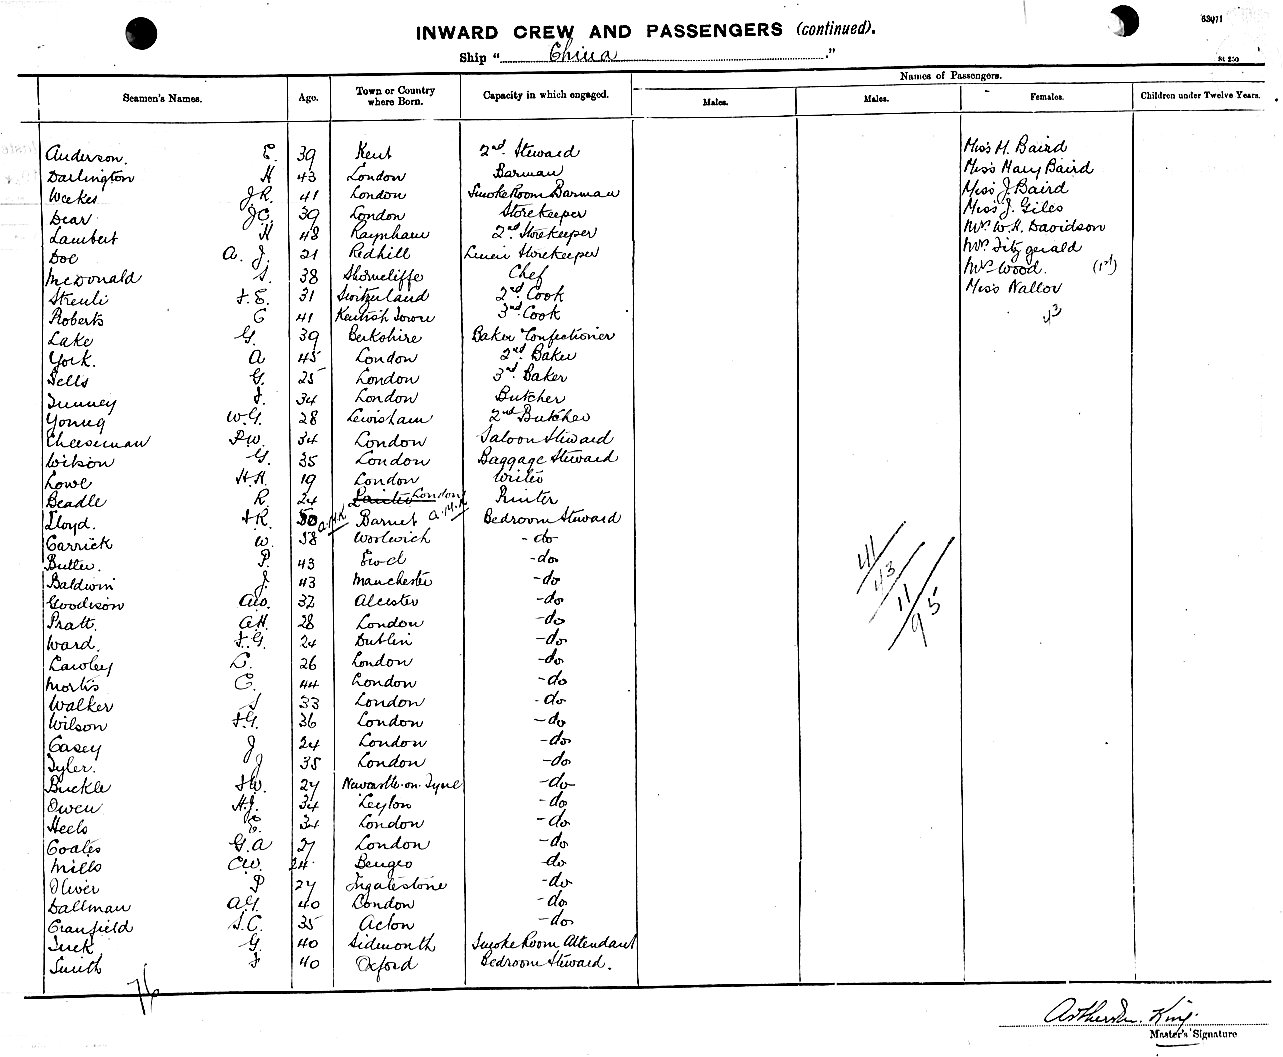 63071
INWARD CREW AND PASSENGERS (continued).
Ship " China "
St 250
Names of Passengers.
Seamen's Names. Age. Town or Country where Born. Capacity in which engaged. Males. Males. Females. Children under Twelve Years.
Anderson. E. 39 Kent 2nd Steward Miss M. Baird
Darlington H 43 London Barman Miss Mary Baird
Weekes J.R. 41 London Smoke Room Barman Miss J. Baird
Dear J.C. 39 London Storekeeper Miss J. Giles
Lambert H 48 Raynham 2nd Storekeeper Mrs W.A. Davidson
Doe A. J. 21 Redhill Linen Storekeeper Mrs Fitzgerald
McDonald 38 Shorncliffe Chef Mrs Wood. (1st)
Steule F.E. 31 Switzerland 2nd Cook Miss Nallov
Roberts C 41 Kentish Town 3rd Cook
Lake G. 39 Berkshire Baker Confectioner
York. A 45 London 2nd Baker
Sells G. 25 London 3rd Baker
Tunney J. 34 London Butcher
Young W.G. 28 Lewisham 2nd Butcher
Cheeseman P.W. 34 London Saloon Steward
Wilson G. 35 London Baggage Steward
Lowe H.A. 19 London Writer
Beadle R 24 London Printer
Lloyd. F.R. 50 A.H.K Barnet A.H.K Bedroom Steward
Garrick W. 38 Woolwich - do -
Butler. P. 43 - do
Baldwin J. 43 Manchester - do
Goodison 32 Alcester - do
Pratt. A.H. 28 London - do
Ward. F.G. 24 Dublin - do
Lawley C. 26 London - do
Morlis C. 44 London - do
Walker J 33 London - do
Wilson F.G. 36 London - do
Casey J 24 London - do
Tyler. J 35 London - do
Buckle F.W. 27 Newcastle-on-Tyne - do -
Owen H.J. 34 Ceylon - do
Heels E. 34 London - do
Coates G.A 27 London - do
Mills C.W. 24 Bengeo - do
Oliver P 27 Ingatestone - do
Dallman A.G. 40 London - do
Cranfield S.C. 35 Acton - do
Tuck G. 40 Sidmouth Smoke Room Attendant
Smith F 40 Oxford Bedroom Steward.
111
113
11
95
76
Master's Signature